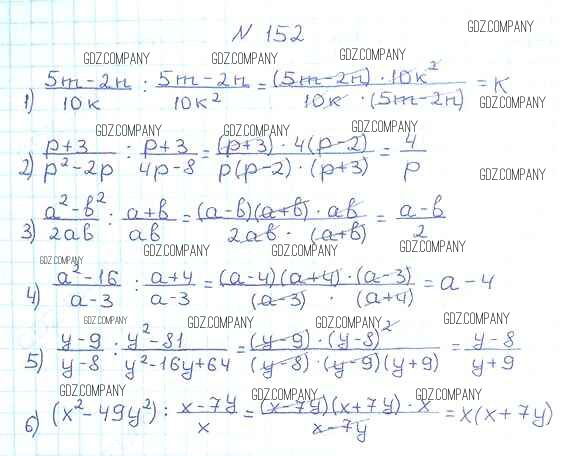 N 152
GDZ.COMPANY
GDZ.COMPANY GDZ.COMPANY GDZ.COMPANY
1) (5m-2n)/(10k) : (5m-2n)/(10k²) = ((5m-2n)·10k²)/(10k·(5m-2n)) = k
GDZ.COMPANY
GDZ.COMPANY GDZ.COMPANY GDZ.COMPANY
2) (p+3)/(p²-2p) : (p+3)/(4p-8) = ((p+3)·4(p-2))/(p(p-2)·(p+3)) = 4/p
GDZ.COMPANY
3) (a²-b²)/(2ab) : (a+b)/(ab) = ((a-b)(a+b)·ab)/(2ab·(a+b)) = (a-b)/2
GDZ.COMPANY GDZ.COMPANY GDZ.COMPANY
GDZ.COMPANY
4) (a²-16)/(a-3) : (a+4)/(a-3) = ((a-4)(a+4)·(a-3))/((a-3)·(a+4)) = a-4
GDZ.COMPANY GDZ.COMPANY GDZ.COMPANY GDZ.COMPANY
5) (y-9)/(y-8) : (y²-81)/(y²-16y+64) = ((y-9)·(y-8)²)/((y-8)·(y-9)(y+9)) = (y-8)/(y+9)
GDZ.COMPANY GDZ.COMPANY GDZ.COMPANY
6) (x²-49y²) : (x-7y)/x = ((x-7y)(x+7y)·x)/(x-7y) = x(x+7y)